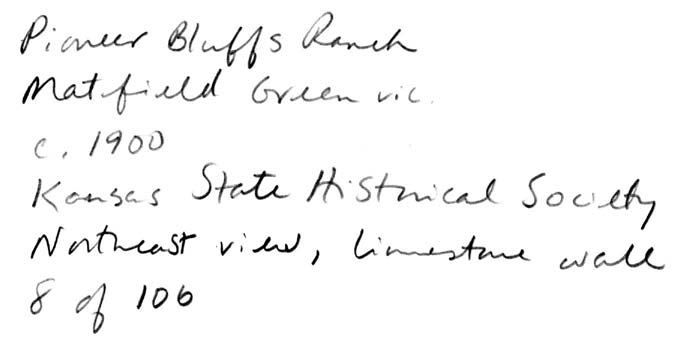 Pioneer Bluffs Ranch
Matfield Green vic.
c. 1900
Kansas State Historical Society
Northeast view, limestone wall
8 of 106